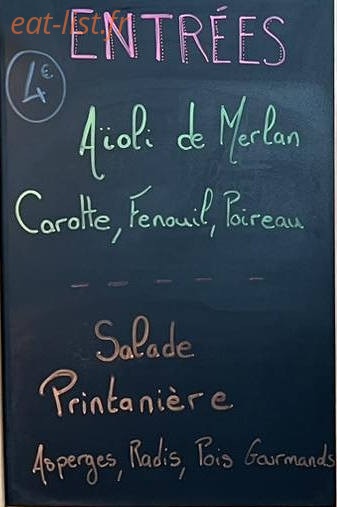 eat-list.fr
ENTRÉES
4€
Aïoli de Merlan
Carotte, Fenouil, Poireau
- - - - -
Salade
Printanière
Asperges, Radis, Pois Gourmands